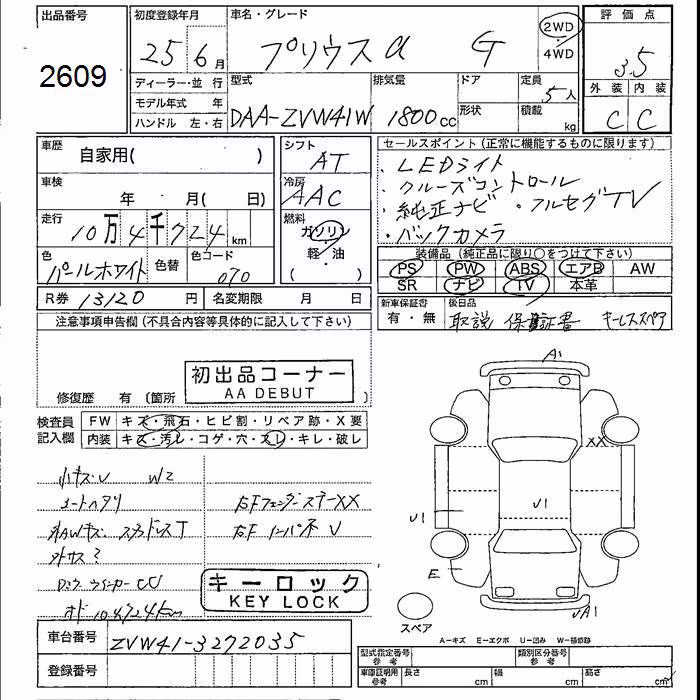 出品番号
2609
初度登録年月
25 6月
ディーラー・並 行
モデル年式 年
ハンドル 左・右
車名・グレード
プリウスα G
2WD
・
4WD
型式
DAA-ZVW41W
排気量
1800cc
ドア
形状
定員
5人
積載
kg
評価点
3.5
外装 内装
C C
車歴
自家用( )
車検
年 月( 日)
走行
10万4千724km
色
パールホワイト
色替
色コード
070
R券 13120円
名変期限 月 日
シフト
AT
冷房
AAC
燃料
ガソリン
軽・油
( )
セールスポイント(正常に機能するものに限ります)
・LEDライト
・クルーズコントロール
・純正ナビ ・フルセグTV
・バックカメラ
装備品(純正品に限り○をつけて下さい)
PS PW ABS エアB AW
SR ナビ TV 本革
新車保証書
有・無
後日品
取説 保証書 キーレススペア
注意事項申告欄(不具合内容等具体的に記入して下さい)
初出品コーナー
AA DEBUT
修復歴 有(箇所
検査員
記入欄
FW キズ・飛石・ヒビ割・リペア跡・X要
内装 キズ・汚レ・コゲ・穴・スレ・キレ・破レ
小キズU W2
シートヘタリ
右FフェンダーステーXX
右FインパネU
キーロック
KEY LOCK
オド104724km
車台番号
ZVW41-3272035
登録番号
A1
XX
U1
U1
E
UA1
スペア
A-キズ E-エクボ U-凹み W-補修跡
型式指定番号
参考
類別区分番号
参考
車庫証明用
参考
長さ cm
幅 cm
高さ cm